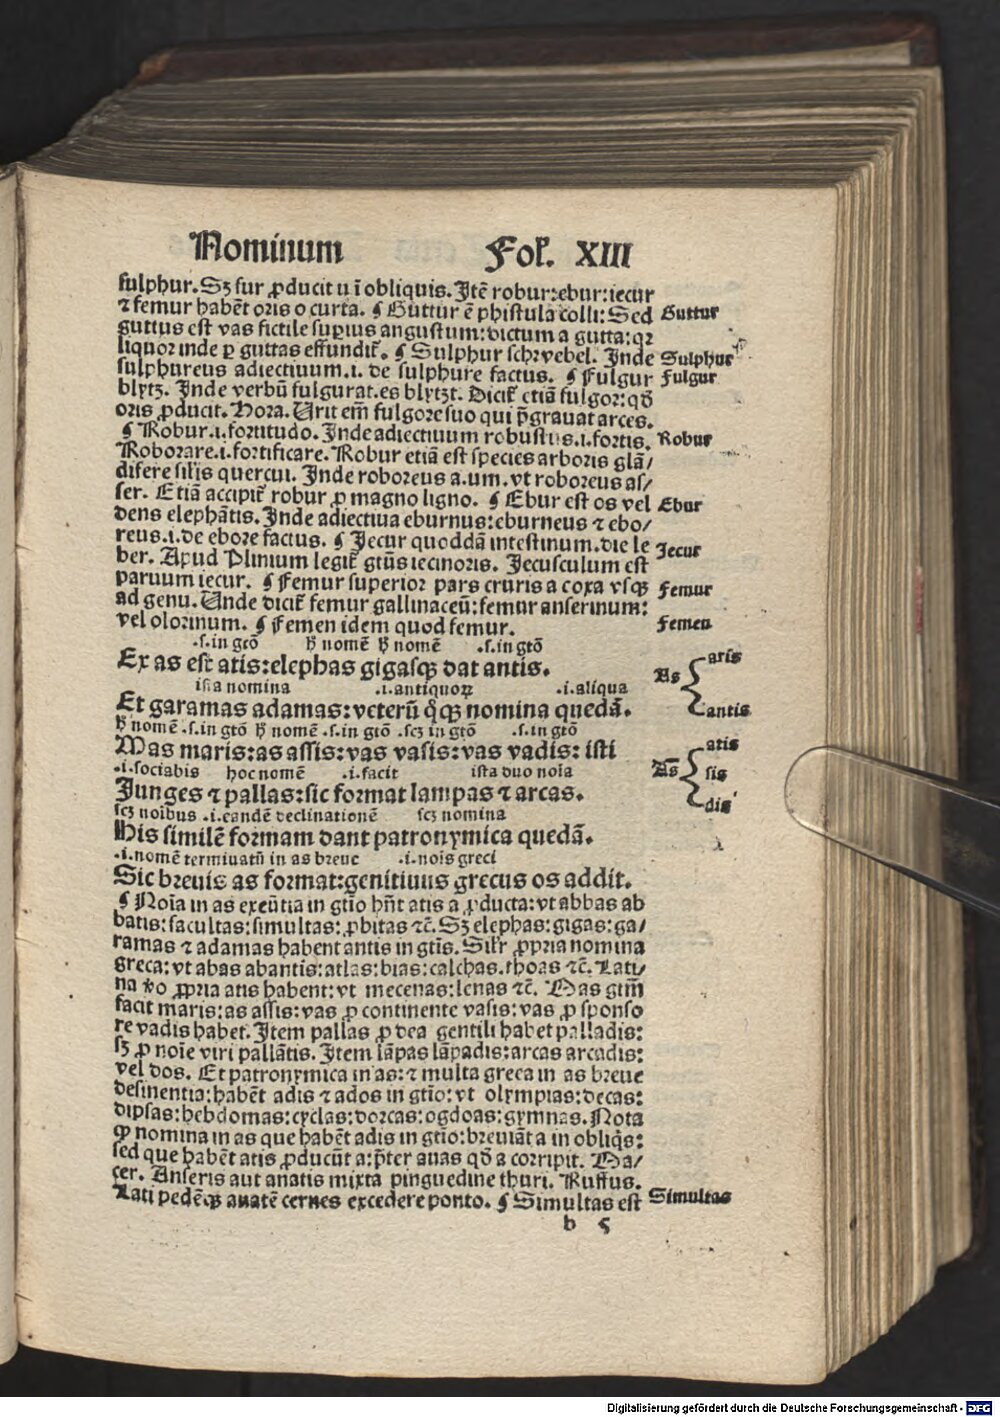 Nominum Fol. XIII
sulphur. Sꝫ fur ꝓducit u ĩ obliquis. Itẽ robur:ebur:iecur
⁊ femur habẽt oris o curta. ¶ Guttur ẽ phistula colli: Sed Guttur
guttus est vas fictile supius angustum:dictum a gutta:qꝛ
liquor inde ꝑ guttas effundit᷑. ¶ Sulphur schwebel. Inde Sulphur
sulphureus adiectiuum.i. de sulphure factus. ¶ Fulgur Fulgur
blytꝫ. Inde verbũ fulgurat.es blytꝫt. Dicit᷑ etiã fulgor: qđ
oris ꝓducit. Hora. Urit em̃ fulgore suo qui p̃grauat arces.
¶ Robur.i.fortitudo. Inde adiectiuum robustus.i.fortis. Robur
Roborare.i.fortificare. Robur etiã est species arboris glã/
difere sil̓is quercui. Inde roboreus a.um.vt roboreus as/
ser. Etiã accipit᷑ robur ꝓ magno ligno. ¶ Ebur est os vel Ebur
dens elephãtis. Inde adiectiua eburnus:eburneus ⁊ ebo/
reus.i.de ebore factus. ¶ Jecur quoddã intestinum.die le Jecur
ber. Apud Plinium legit᷑ gtũs iecinoris. Jecusculum est
paruum iecur. ¶ Femur superior pars cruris a coxa vsqꝫ Femur
ad genu. Unde dicit᷑ femur gallinaceũ:femur anserinum:
vel olorinum. ¶ Femen idem quod femur. Femen
.s.in gtõ ħ nomẽ ħ nomẽ .s.in gtõ
Ex as est atis:elephas gigasqꝫ dat antis. As aris antis
ista nomina .i.antiquoꝝ .i.aliqua
Et garamas adamas:veterũ q̃qꝫ nomina quedã.
ħ nomẽ .s.in gtõ ħ nomẽ .s.in gtõ .scꝫ in gtõ .s.in gtõ
Mas maris:as assis:vas vasis:vas vadis: isti As atis sis dis
.i.sociabis hoc nomẽ .i.facit ista duo noĩa
Junges ⁊ pallas:sic format lampas ⁊ arcas.
scꝫ noĩbus .i.eandẽ declinationẽ scꝫ nomina
His similẽ formam dant patronymica quedã.
.i.nomẽ terminatũ in as breue .i.nois greci
Sic breuis as format:genitiuus grecus os addit.
¶ Noĩa in as exeũtia in gtĩo hñt atis a ꝓducta:vt abbas ab
batis:facultas:simultas: ꝓbitas ⁊c̃. Sꝫ elephas:gigas:ga/
ramas ⁊ adamas habent antis in gtĩs. Sil̓r ꝓpria nomina
greca: vt abas abantis:atlas:bias:calchas.thoas ⁊c̃. Lati/
na ꝟo ꝓpria atis habent:vt mecenas:lenas ⁊c̃. Mas gtm̃
facit maris:as assis:vas ꝓ continente vasis:vas ꝓ sponso
re vadis habet. Item pallas ꝓ dea gentili habet palladis:
sꝫ ꝓ noĩe viri pallãtis. Item lãpas lãpadis:arcas arcadis:
vel dos. Et patronymica in as:⁊ multa greca in as breue
desinentia:habẽt adis ⁊ ados in gtĩo: vt olympias:decas:
dipsas:hebdomas:cyclas:dorcas:ogdoas:gymnas. Nota
ꝙ nomina in as que habẽt adis in gtĩo:breuiãt a in obliq̃s:
sed que habẽt atis ꝓducũt a:p̃ter anas qđ a corripit. Ma/
cer. Anseris aut anatis mixta pinguedine thuri. Ruffus.
Lati pedẽqꝫ anatẽ cernes excedere ponto. ¶ Simultas est Simultas
b 5
Digitalisierung gefördert durch die Deutsche Forschungsgemeinschaft - DFG